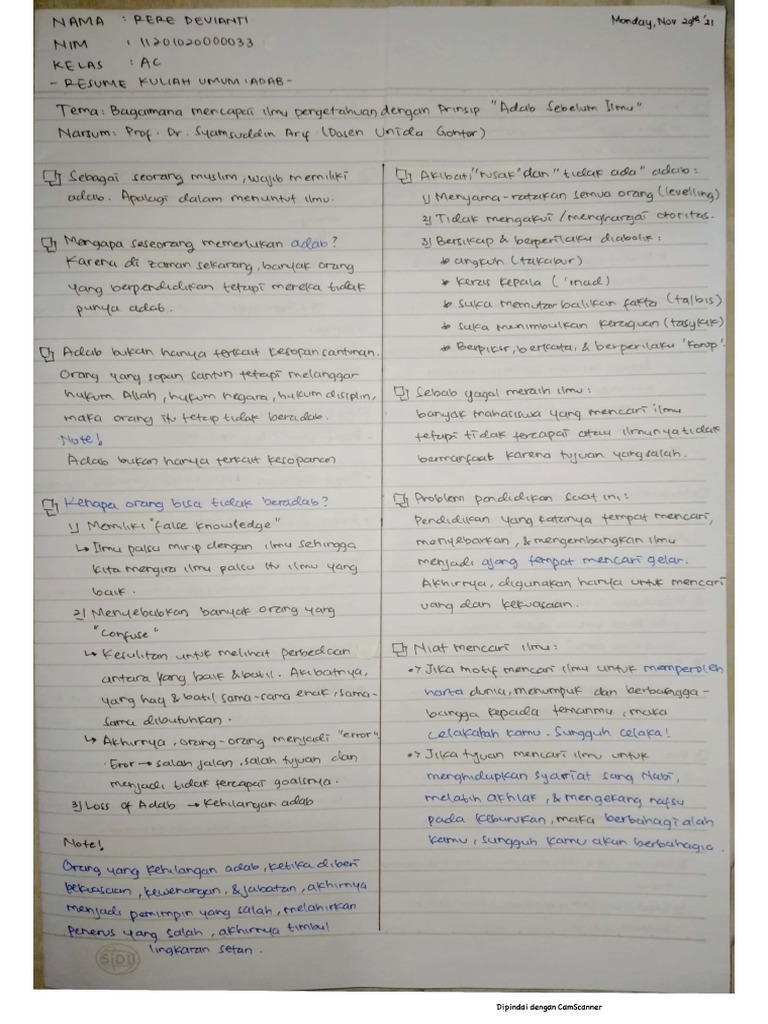 NAMA : RERE DEVIANTI
Monday, Nov 29th '21
NIM : 11201020000033
KELAS : AC
- RESUME KULIAH UMUM : ADAB -
Tema : Bagaimana mencapai ilmu pengetahuan dengan Prinsip "Adab Sebelum Ilmu"
Narsum : Prof. Dr. Syamsuddin Arif (Dosen Unida Gontor)
Sebagai seorang muslim, wajib memiliki
adab. Apalagi dalam menuntut ilmu.
Mengapa seseorang memerlukan adab?
Karena di zaman sekarang, banyak orang
yang berpendidikan tetapi mereka tidak
punya adab.
Adab bukan hanya terkait kesopansantunan.
Orang yang sopan santun tetapi melanggar
hukum Allah, hukum negara, hukum disiplin,
maka orang itu tetap tidak beradab.
Note!
Adab bukan hanya terkait kesopanan
Kenapa orang bisa tidak beradab?
1) Memiliki "false knowledge"
↳ Ilmu palsu mirip dengan ilmu sehingga
kita mengira ilmu palsu itu ilmu yang
baik.
2) Menyebabkan banyak orang yang
"confuse"
↳ Kesulitan untuk melihat perbedaan
antara yang baik & batil. Akibatnya,
yang haq & batil sama-sama enak, sama-
sama dibutuhkan.
↳ Akhirnya, orang-orang menjadi "error"
Eror → salah jalan, salah tujuan dan
menjadi tidak tercapai goalsnya.
3) Loss of Adab → Kehilangan adab
Note!
Orang yang kehilangan adab, ketika diberi
kekuasaan, kewenangan, & jabatan, akhirnya
menjadi pemimpin yang salah, melahirkan
penerus yang salah, akhirnya timbul
lingkaran setan.
SiDU
Akibat "rusak" dan "tidak ada" adab :
1) Menyama-ratakan semua orang (levelling)
2) Tidak mengakui / menghargai otoritas.
3) Bersikap & berperilaku diabolik :
* angkuh (takabur)
* keras kepala ('inad)
* suka memutar balikan fakta (talbis)
* suka menimbulkan keraguan (tasykik)
* Berpikir, berkata, & berperilaku 'Korup'.
Sebab gagal meraih ilmu :
banyak mahasiswa yang mencari ilmu
tetapi tidak tercapai atau ilmunya tidak
bermanfaat karena tujuan yang salah.
Problem pendidikan saat ini :
Pendidikan yang katanya tempat mencari,
menyebarkan, & mengembangkan ilmu
menjadi ajang tempat mencari gelar.
Akhirnya, digunakan hanya untuk mencari
uang dan kekuasaan.
Niat mencari ilmu :
•> Jika motif mencari ilmu untuk memperoleh
harta dunia, menumpuk dan berbangga-
bangga kepada temanmu, maka
celakalah kamu. Sungguh celaka!
•> Jika tujuan mencari ilmu untuk
menghidupkan syariat sang Nabi,
melatih akhlak, & mengekang nafsu
pada keburukan, maka berbahagialah
kamu, sungguh kamu akan berbahagia.
Dipindai dengan CamScanner